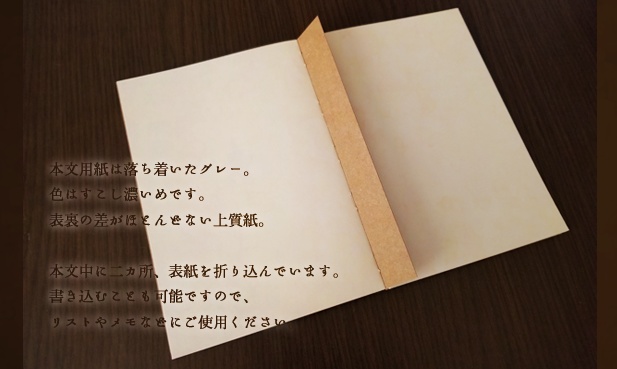 本文用紙は落ち着いたグレー。
色はすこし濃いめです。
表裏の差がほとんどない上質紙。
本文中に二カ所、表紙を折り込んでいます。
書き込むことも可能ですので、
リストやメモなどにご使用ください